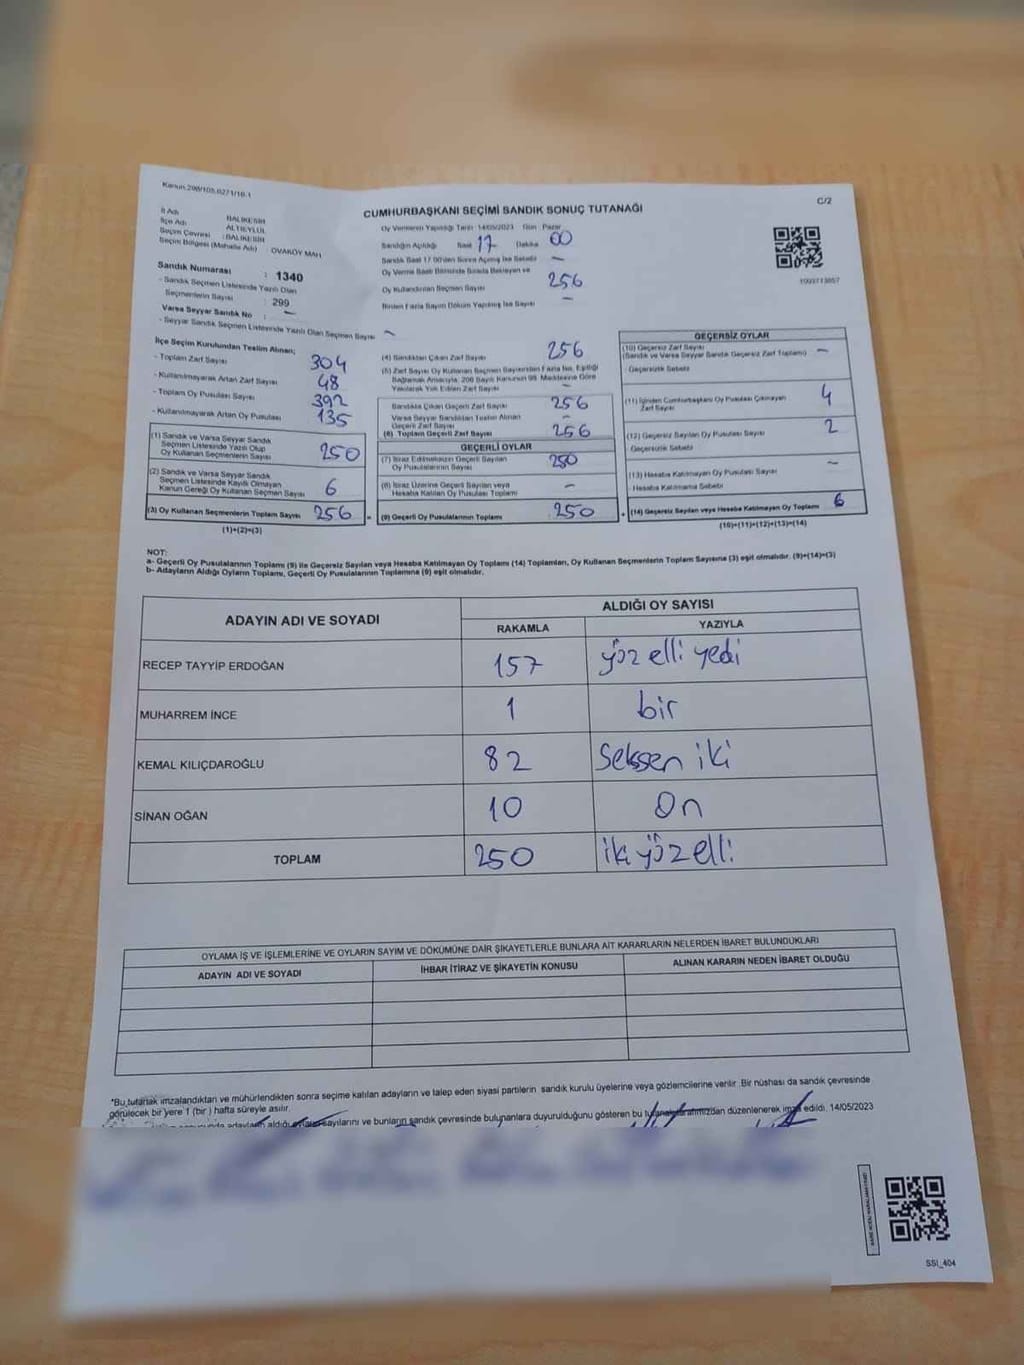 Kanun.298/105,6271/18-1
C/2
CUMHURBAŞKANI SEÇİMİ SANDIK SONUÇ TUTANAĞI
İl Adı : BALIKESİR
İlçe Adı : ALTIEYLÜL
Seçim Çevresi : BALIKESİR
Seçim Bölgesi (Mahalle Adı) : OVAKÖY MAH.
Sandık Numarası : 1340
- Sandık Seçmen Listesinde Yazılı Olan
Seçmenlerin Sayısı : 299
Varsa Seyyar Sandık No : -
- Seyyar Sandık Seçmen Listesinde Yazılı Olan Seçmen Sayısı -
Oy Vermenin Yapıldığı Tarih: 14/05/2023 Gün Pazar
Sandığın Açıldığı Saat 17 Dakika 00
Sandık Saat 17:00'den Sonra Açılmış İse Sebebi -
Oy Verme Saati Bitiminde Sırada Bekleyen ve
Oy Kullandırılan Seçmen Sayısı 256
Birden Fazla Sayım Döküm Yapılmış İse Sayısı -
İlçe Seçim Kurulundan Teslim Alınan;
- Toplam Zarf Sayısı 304
- Kullanılmayarak Artan Zarf Sayısı 48
- Toplam Oy Pusulası Sayısı 392
- Kullanılmayarak Artan Oy Pusulası 135
(1) Sandık ve Varsa Seyyar Sandık
Seçmen Listesinde Yazılı Olup
Oy Kullanan Seçmenlerin Sayısı 250
(2) Sandık ve Varsa Seyyar Sandık
Seçmen Listesinde Kayıtlı Olmayan
Kanun Gereği Oy Kullanan Seçmen Sayısı 6
(3) Oy Kullanan Seçmenlerin Toplam Sayısı 256
(1)+(2)=(3)
(4) Sandıktan Çıkan Zarf Sayısı 256
(5) Zarf Sayısı Oy Kullanan Seçmen Sayısından Fazla İse, Eşitliği
Sağlamak Amacıyla, 298 Sayılı Kanunun 98. Maddesine Göre
Yakılarak Yok Edilen Zarf Sayısı -
Sandıkta Çıkan Geçerli Zarf Sayısı 256
Varsa Seyyar Sandıktan Teslim Alınan
Geçerli Zarf Sayısı -
(6) Toplam Geçerli Zarf Sayısı 256
GEÇERLİ OYLAR
(7) İtiraz Edilmeksizin Geçerli Sayılan
Oy Pusulalarının Sayısı 250
(8) İtiraz Üzerine Geçerli Sayılan veya
Hesaba Katılan Oy Pusulası Toplamı -
(9) Geçerli Oy Pusulalarının Toplamı 250
GEÇERSİZ OYLAR
(10) Geçersiz Zarf Sayısı
(Sandık ve Varsa Seyyar Sandık Geçersiz Zarf Toplamı) -
Geçersizlik Sebebi
(11) İçinden Cumhurbaşkanı Oy Pusulası Çıkmayan
Zarf Sayısı 4
(12) Geçersiz Sayılan Oy Pusulası Sayısı 2
Geçersizlik Sebebi
(13) Hesaba Katılmayan Oy Pusulası Sayısı -
Hesaba Katılmama Sebebi
(14) Geçersiz Sayılan veya Hesaba Katılmayan Oy Toplamı 6
(10)+(11)+(12)+(13)=(14)
NOT:
a- Geçerli Oy Pusulalarının Toplamı (9) ile Geçersiz Sayılan veya Hesaba Katılmayan Oy Toplamı (14) Toplamları, Oy Kullanan Seçmenlerin Toplam Sayısına (3) eşit olmalıdır. (9)+(14)=(3)
b- Adayların Aldığı Oyların Toplamı, Geçerli Oy Pusulalarının Toplamına (9) eşit olmalıdır.
ADAYIN ADI VE SOYADI ALDIĞI OY SAYISI
RAKAMLA YAZIYLA
RECEP TAYYİP ERDOĞAN 157 yüz elli yedi
MUHARREM İNCE 1 bir
KEMAL KILIÇDAROĞLU 82 Seksen iki
SİNAN OĞAN 10 On
TOPLAM 250 iki yüz elli
OYLAMA İŞ VE İŞLEMLERİNE VE OYLARIN SAYIM VE DÖKÜMÜNE DAİR ŞİKAYETLERLE BUNLARA AİT KARARLARIN NELERDEN İBARET BULUNDUKLARI
ADAYIN ADI VE SOYADI İHBAR İTİRAZ VE ŞİKAYETİN KONUSU ALINAN KARARIN NEDEN İBARET OLDUĞU
*Bu tutanak imzalandıktan ve mühürlendikten sonra seçime katılan adayların ve talep eden siyasi partilerin sandık kurulu üyelerine veya gözlemcilerine verilir. Bir nüshası da sandık çevresinde
görülecek bir yere 1 (bir) hafta süreyle asılır.
adayların aldığı oyların sayılarını ve bunların sandık çevresinde bulunanlara duyurulduğunu gösteren bu tutanak tarafımızdan düzenlenerek imza edildi. 14/05/2023
SSI_404